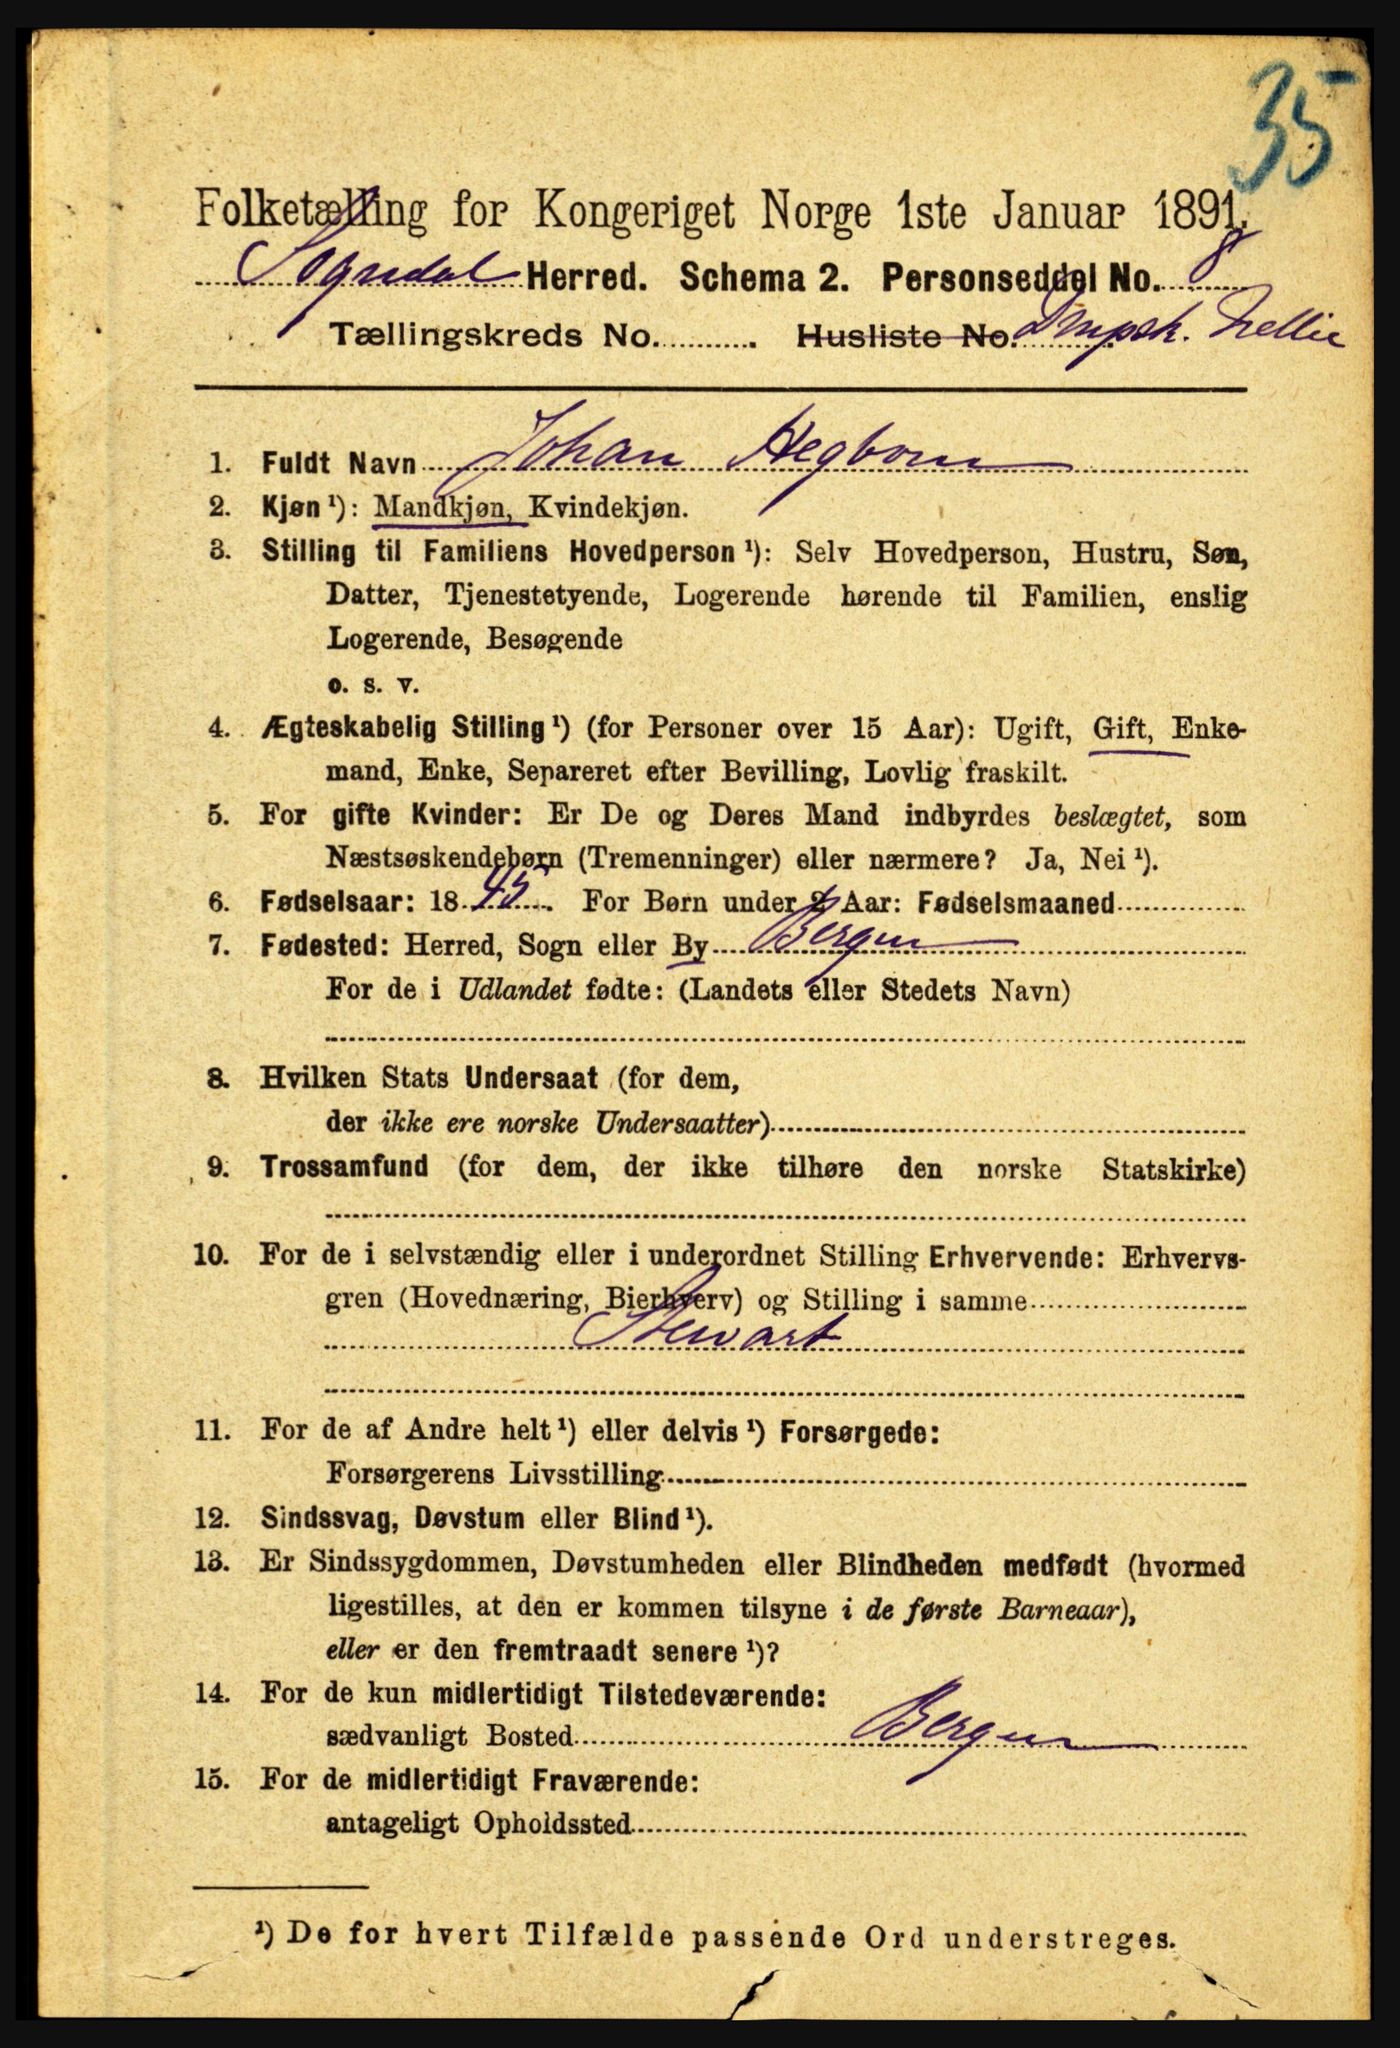 35
Folketælling for Kongeriget Norge 1ste Januar 1891.
Sogndal Herred. Schema 2. Personseddel No. 8
Tællingskreds No. Husliste No. Dmpsk. Nellie
1. Fuldt Navn Johan Hegbom
2. Kjøn ¹): Mandkjøn, Kvindekjøn.
3. Stilling til Familiens Hovedperson ¹): Selv Hovedperson, Hustru, Søn,
Datter, Tjenestetyende, Logerende hørende til Familien, enslig
Logerende, Besøgende
o. s. v.
4. Ægteskabelig Stilling ¹) (for Personer over 15 Aar): Ugift, Gift, Enke-
mand, Enke, Separeret efter Bevilling, Lovlig fraskilt.
5. For gifte Kvinder: Er De og Deres Mand indbyrdes beslægtet, som
Næstsøskendebørn (Tremenninger) eller nærmere? Ja, Nei ¹).
6. Fødselsaar: 1845. For Børn under 2 Aar: Fødselsmaaned
7. Fødested: Herred, Sogn eller By Bergen
For de i Udlandet fødte: (Landets eller Stedets Navn)
8. Hvilken Stats Undersaat (for dem,
der ikke ere norske Undersaatter)
9. Trossamfund (for dem, der ikke tilhøre den norske Statskirke)
10. For de i selvstændig eller i underordnet Stilling Erhvervende: Erhvervs-
gren (Hovednæring, Bierhverv) og Stilling i samme
Stewart
11. For de af Andre helt ¹) eller delvis ¹) Forsørgede:
Forsørgerens Livsstilling
12. Sindssvag, Døvstum eller Blind ¹).
13. Er Sindssygdommen, Døvstumheden eller Blindheden medfødt (hvormed
ligestilles, at den er kommen tilsyne i de første Barneaar),
eller er den fremtraadt senere ¹)?
14. For de kun midlertidigt Tilstedeværende:
sædvanligt Bosted Bergen
15. For de midlertidigt Fraværende:
antageligt Opholdssted
¹) De for hvert Tilfælde passende Ord understreges.